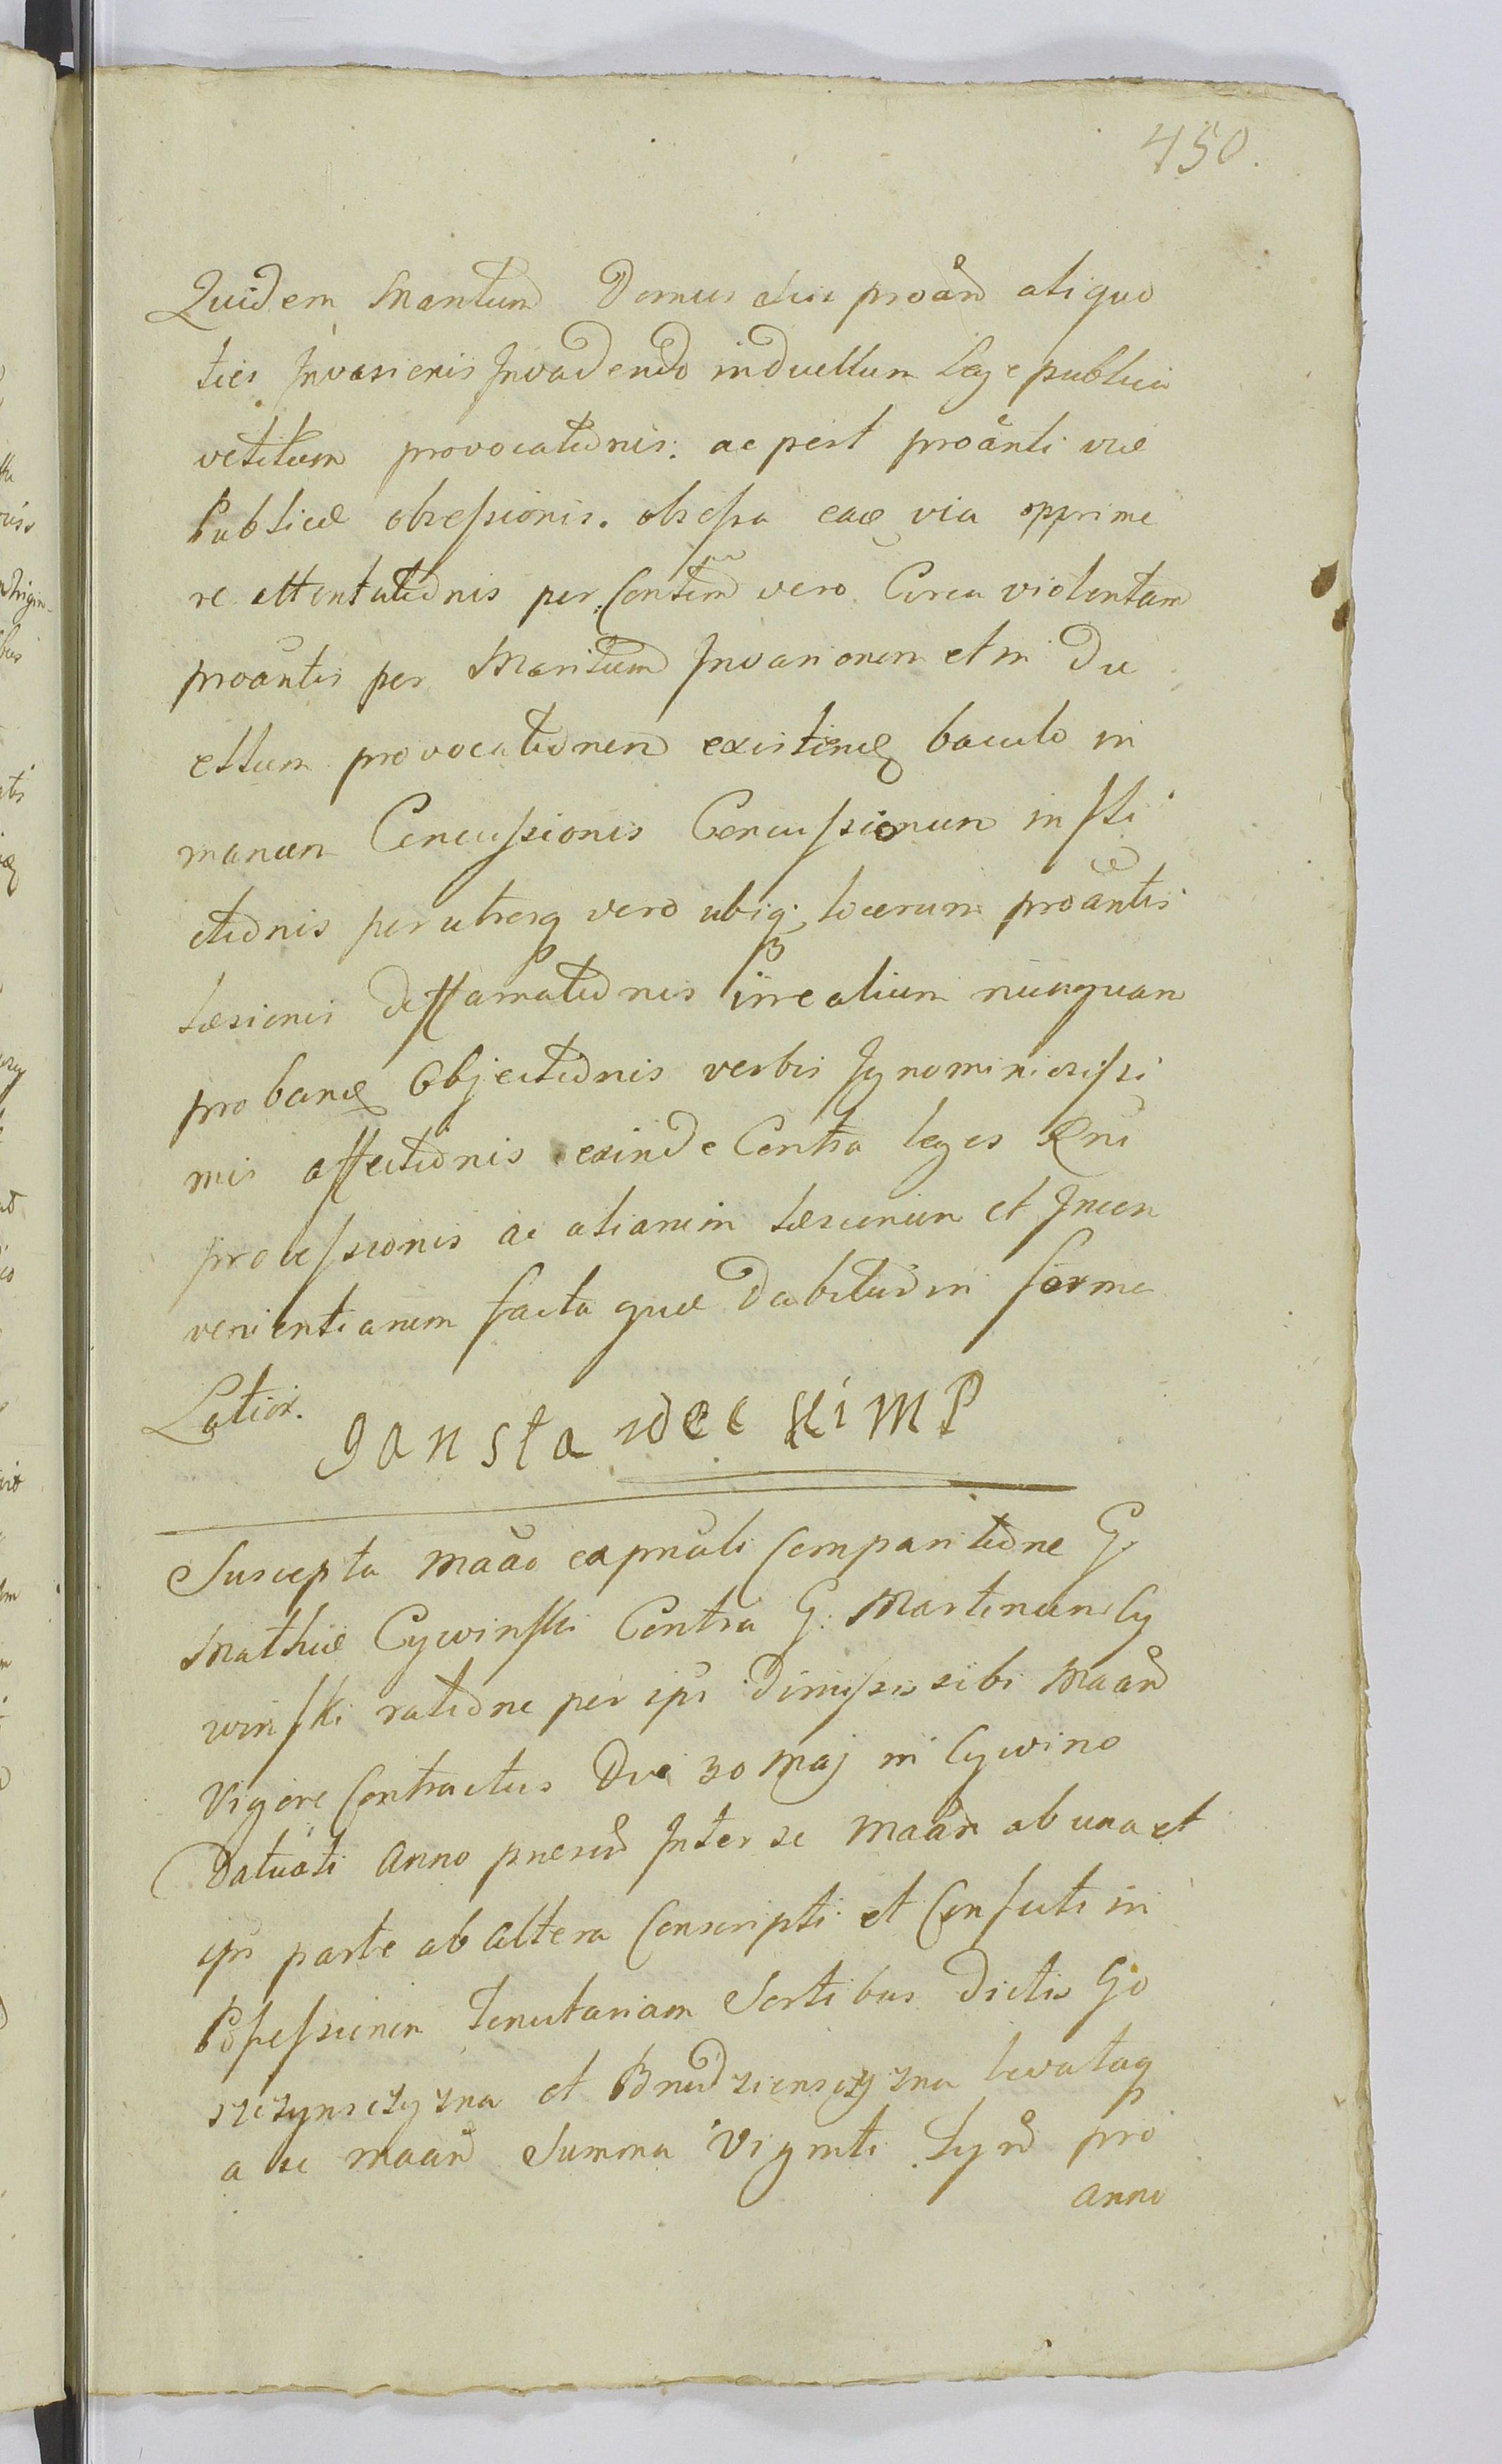 450.
Quidem Maritum Domus suæ proãn aliquo
ties Invasionis Invadendo in duellum Lege publica
vetitum provocationis. ac post proãnti viæ
Publicæ obsessionis. obsessa eaq via opprime
re attentationis per Contem vero Circa violentam
proantis per Maritum Invasionem et in Du
ellum provocationem existenq baculo in
manum Concussionis Concussionum infli
ctionis per utrosq vero ubiq locorum proantis
læsionis deffamationis irrealium nunquam
probanq Objectionis verbis Ignominiosissi
mis affectionis exinde Contra leges Rni
processionis ac aliarum læsionum et Incon
venientiarum facta quæ dabitur in forma
Latiori.
Jan Sta
Suscepta maão ex pnãli Comparitione G.
Mathiæ Cywinski Contra G. Martinum Cy
winski ratione per ips dimissis sibi Maão
Vigore Contractus Die 30 Maj in Cywino
Datuati Anno pnesen Inter se Maãn ab una et
ips parte ab altera Conscripti et Confecti in
Possessionem Tenutariam Sortibus dictis Go
szczynszczyzna et Brudzienszczyzna levataq
a se maãn Summa Viginti Tyñ pro
anno